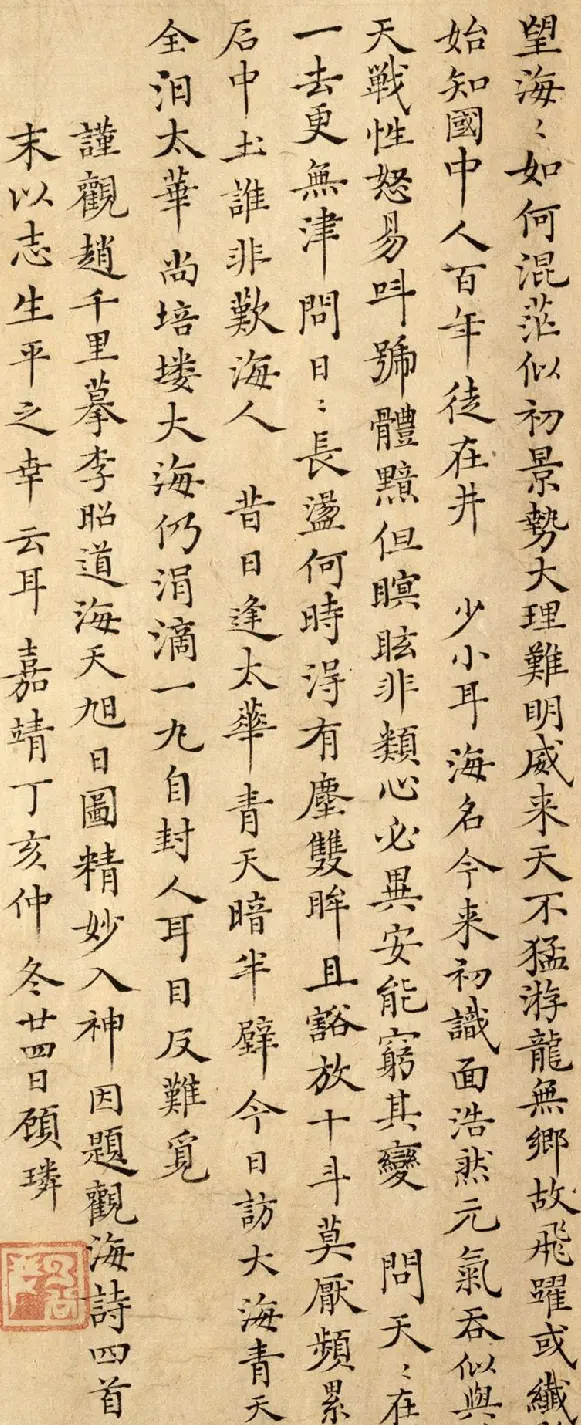 望海〻如何混茫似初景勢大理難明威来天不猛游龍無鄉故飛躍或纖
始知國中人百年徒在井 少小耳海名今来初識面浩然元氣吞似與
天戰性怒易叫號體黯但瞑眩非類心必異安能窮其變 問天〻在
一去更無津問日〻長盪何時淂有塵雙眸且豁放十斗莫厭頻累
后中土誰非歎海人 昔日逢太華青天暗半壁今日訪大海青天
全汨太華尚培塿大海仍涓滴一九自封人耳目反難覓
謹觀趙千里摹李昭道海天旭日圖精妙入神因題觀海詩四首
末以志生平之幸云耳 嘉靖丁亥仲冬廿四日顧璘